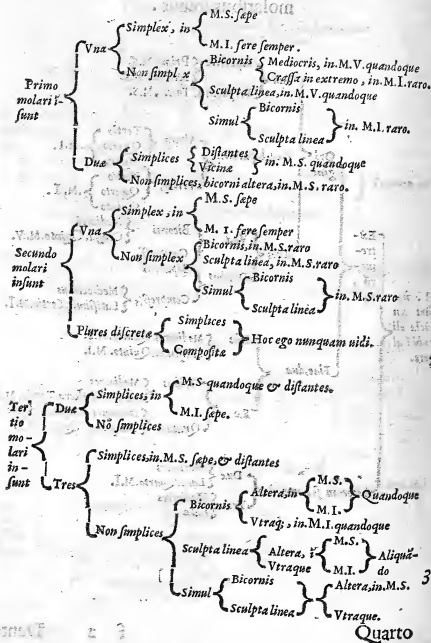 Simplex, in M.S. sæpe
M.I. fere semper.
Vna
Non simplex
Bicornis
Mediocris, in.M.V.quandoque
Crassa in extremo, in.M.I.raro.
Sculpta linea, in.M.V.quandoque
Simul
Bicornis
Sculpta linea
in. M.I. raro.
Primo
molari ĩ-
sunt
Duæ
Simplices
Distantes
Vicinæ
in. M.S. quandoque
Non simplices, bicorni altera, in.M.S. raro.
Simplex, in
M.S. sæpe
M. I. fere semper
Vna
Non simplex
Bicornis, in.M.S.raro
Sculpta linea, in.M.S.raro
Simul
Bicornis
Sculpta linea
in.M.S.raro
Secundo
molari
insunt
Plures discretæ
Simplices
Compositæ
Hoc ego nunquam uidi.
Simplices, in
M.S quandoque & distantes.
M.I. sæpe.
Duæ
Nõ simplices
Ter
tio
mo-
lari
in-
sunt
Simplices, in.M.S. sæpe, & distantes
Tres
Non simplices
Bicornis
Altera, in
M.S.
M.I.
Quandoque
Vtraq;, in.M.I.quandoque
Sculpta linea
Altera, ĩ
Vtraque
M.S.
M.I.
Aliquã-
do
3
Simul
Bicornis
Sculpta linea
Altera, in.M.S.
Vtraque.
Quarto